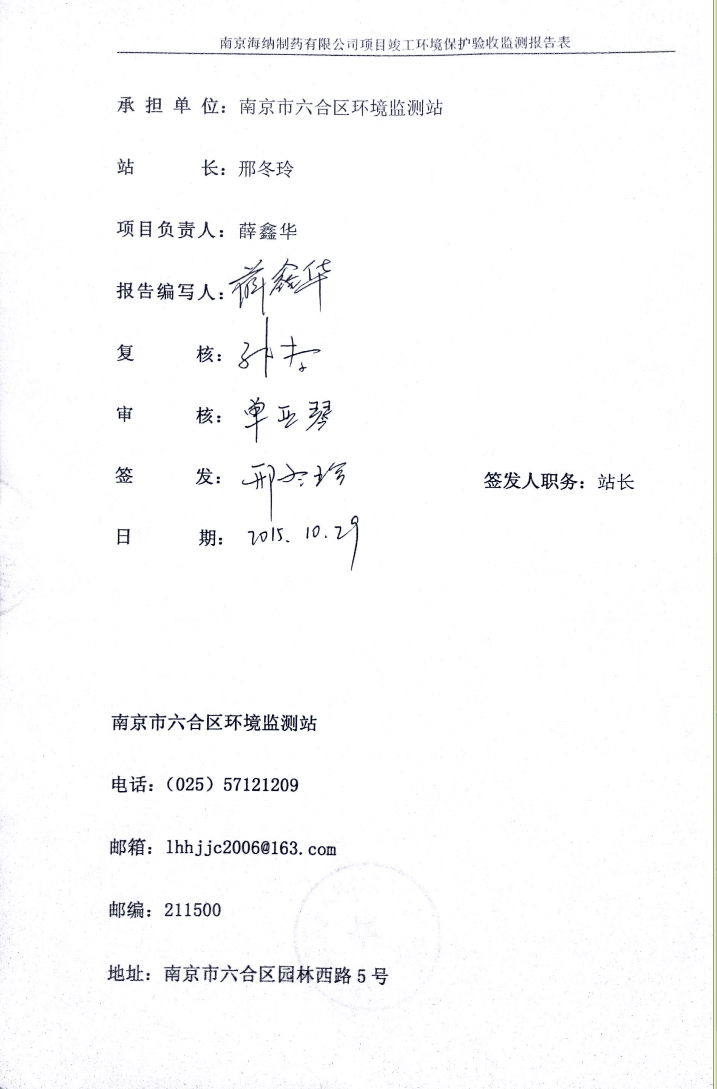 南京海纳制药有限公司项目竣工环境保护验收监测报告表
承 担 单 位：南京市六合区环境监测站
站 长：邢冬玲
项目负责人：薛鑫华
报告编写人：薛鑫华
复 核：
审 核：单亚琴
签 发：邢冬玲 签发人职务：站长
日 期：2015.10.29
南京市六合区环境监测站
电话：（025）57121209
邮箱：lhhjjc2006@163.com
邮编：211500
地址：南京市六合区园林西路 5 号